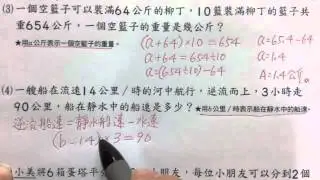 (3)一個空籃子可以裝滿64公斤的柳丁,10籃裝滿柳丁的籃子共
重654公斤,一個空籃子的重量是幾公斤?
★用a公斤表示一個空籃子的重量。
(a+64)×10=654
a+64=65.4
a=65.4-64
a=1.4
A:1.4公斤
(4)一艘船在流速14公里/時的河中航行,逆流而上,3小時走
90公里,船在靜水中的船速是多少?
★用b公里/時表示船在靜水中的船速。
逆流船速=靜水船速-水速
(b-14)×3=90
小美將6箱蛋塔平分
位小朋友,每位小朋友可以分到2個